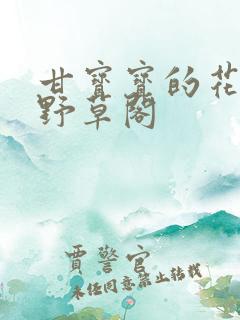 甘寳寳的花
野草閣
賈警官
未经同意禁止转载